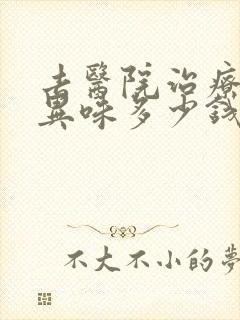 去醫院治療
異味多少錢
不大不小的夢